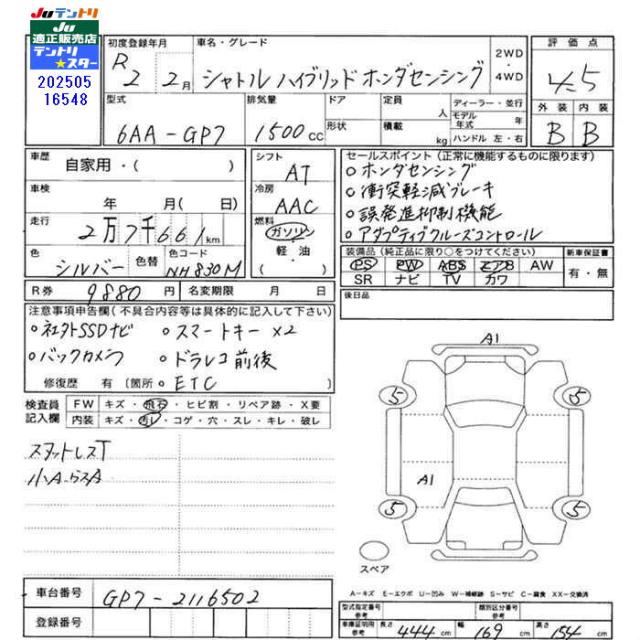 JUテントリ
JU
適正販売店
テントリ
★スター
202505
16548
初度登録年月
R 2 2月
車名・グレード
シャトル ハイブリッド ホンダセンシング
2WD
・
4WD
評価点
4.5
外装 内装
B B
型式
6AA-GP7
排気量
1500cc
ドア
形状
定員
人
積載
kg
ディーラー・並行
モデル
年式
年
ハンドル 左・右
車歴
自家用・( )
車検
年 月( 日)
走行
2万7千661km
色
シルバー
色替
色コード
NH830M
シフト
AT
冷房
AAC
燃料
ガソリン
軽油
セールスポイント(正常に機能するものに限ります)
○ホンダセンシング
○衝突軽減ブレーキ
○誤発進抑制機能
○アダプティブクルーズコントロール
装備品(純正品に限り○をつけてください)
PS PW ABS エアB AW
SR ナビ TV カワ
新車保証書
有・無
R券
9880円
名変期限 月 日
後日品
注意事項申告欄(不具合内容等は具体的に記入して下さい)
○社外SSDナビ ○スマートキー×2
○バックカメラ ○ドラレコ前後
修復歴 有(箇所 ○ETC
検査員
記入欄
FW キズ・飛石・ヒビ割・リペア跡・X要
内装 キズ・汚レ・コゲ・穴・スレ・キレ・破レ
スタットレスT
小A・ラスA
A1
5
5
A1
5
5
スペア
A-キズ E-エクボ U-凹み W-補修跡 S-サビ C-腐食 XX-交換済
車台番号
GP7-2116502
登録番号
型式指定番号
参考
類別区分番号
参考
車庫証明用
参考
長さ 444cm 幅 169cm 高さ 154cm